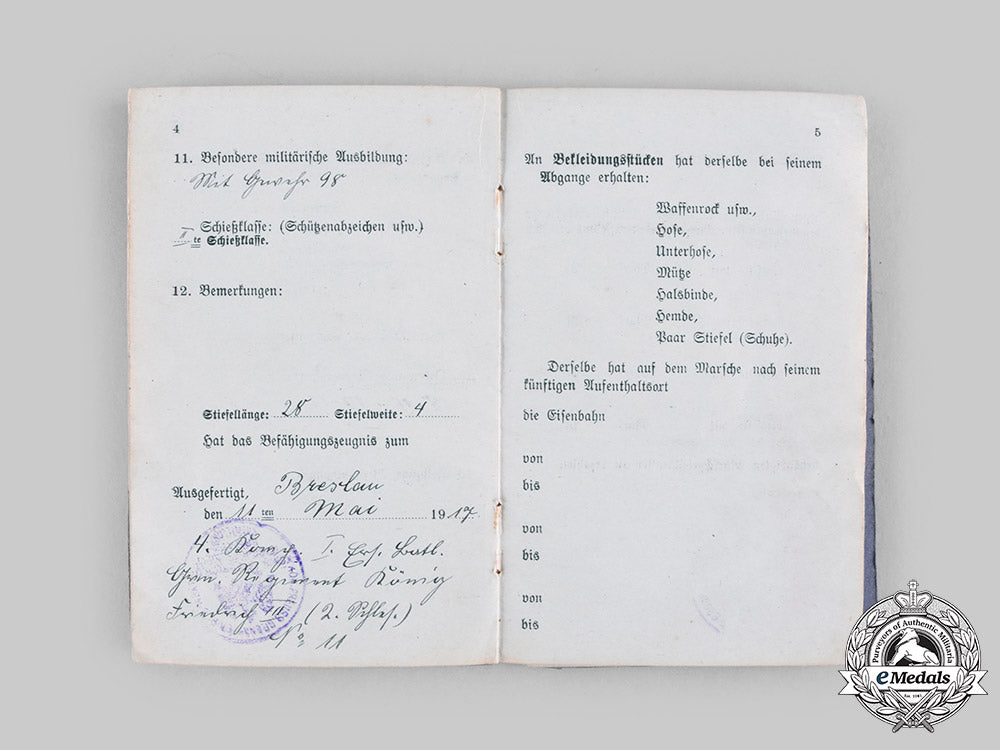 4
11. Besondere militärische Ausbildung:
Mit Gewehr 98
Schießklasse: (Schützenabzeichen usw.)
II te Schießklasse.
12. Bemerkungen:
Stiefellänge: 28 Stiefelweite: 4
Hat das Befähigungszeugnis zum
Ausgefertigt, Breslau
den 11 ten Mai 1917.
4. Komp. I. Ers. Batl.
Gren. Regiment König
Friedrich III (2. Schles.)
No 11
5
An Bekleidungsstücken hat derselbe bei seinem
Abgange erhalten:
Waffenrock usw.,
Hose,
Unterhose,
Mütze
Halsbinde,
Hemde,
Paar Stiefel (Schuhe).
Derselbe hat auf dem Marsche nach seinem
künftigen Aufenthaltsort
die Eisenbahn
von
bis
von
bis
von
bis
Purveyors of Authentic Militaria
eMedals